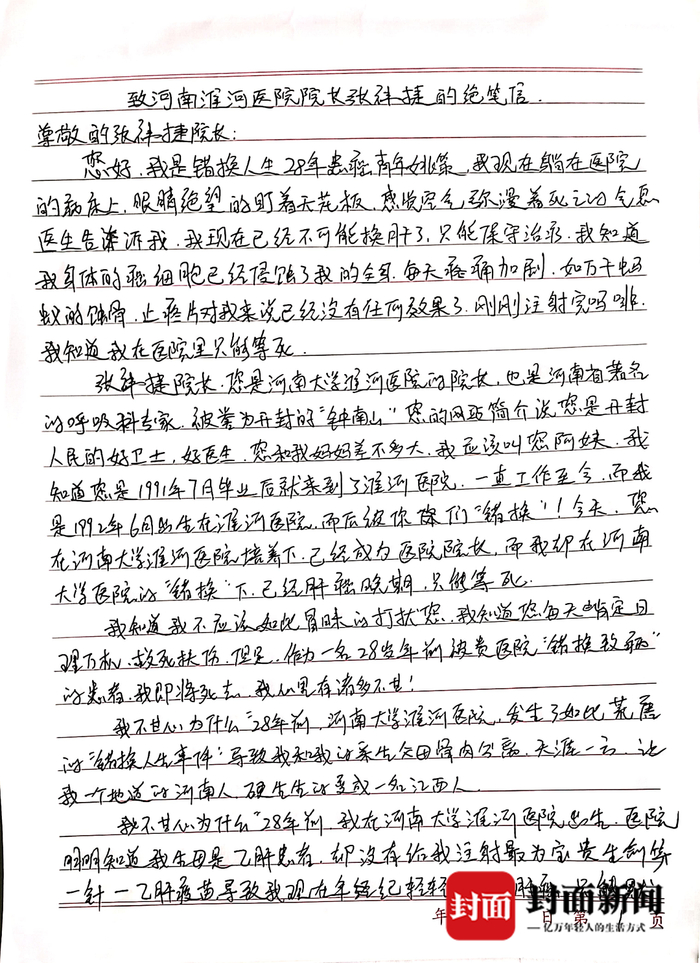 致河南淮河医院院长张祥捷的绝笔信.
尊敬的张祥捷院长:
您好,我是错换人生28年患癌青年姚策,我现在躺在医院
的病床上,眼睛绝望的盯着天花板,感觉空气弥漫着死亡的气息
医生告诉我,我现在已经不可能换肝了,只能保守治疗.我知道
我身体的癌细胞已经侵蚀了我的全身.每天疼痛加剧,如万千蚂
蚁的蚀骨,止疼片对我来说已经没有任何效果了.刚刚注射完吗啡.
我知道我在医院里只能等死.
张祥捷院长.您是河南大学淮河医院的院长,也是河南省著名
的呼吸科专家.被誉为开封的"钟南山"您的网站简介说您是开封
人民的好卫士,好医生.您和我妈妈差不多大.我应该叫您阿姨.我
知道您是1991年7月毕业后就来到了淮河医院.一直工作至今,而我
是1992年6月出生在淮河医院.而后被你们"错换"!今天,您
在河南大学淮河医院培养下,已经成为医院院长,而我却在河南
大学医院的"错换"下.已经肝癌晚期,只能等死.
我知道我不应该如此冒昧的打扰您.我知道您每天肯定日
理万机,救死扶伤,但是,作为一名28岁年前被贵医院"错换致病"
的患者.我即将死去.我心里有诸多不甘!
我不甘心为什么"28年前,河南大学淮河医院,发生了如此荒唐
的"错换人生事件"导致我和我的亲生父母骨肉分离.天涯一方,让
我一个地道的河南人,硬生生的变成一名江西人.
我不甘心为什么"28年前,我在河南大学淮河医院出生,医院
明明知道我生母是乙肝患者,却没有给我注射最为宝贵生命第
一针一乙肝疫苗导致我现在年经纪轻轻
年 日 第 页
封面 封面新闻
亿万年轻人的生活方式